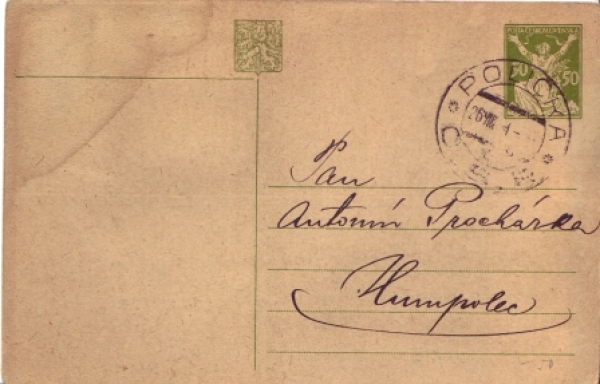 POŠTA ČESKOSLOVENSKÁ
50 50
POLIČKA
26 VIII
Pan
Antonín Procházka
Humpolec
50